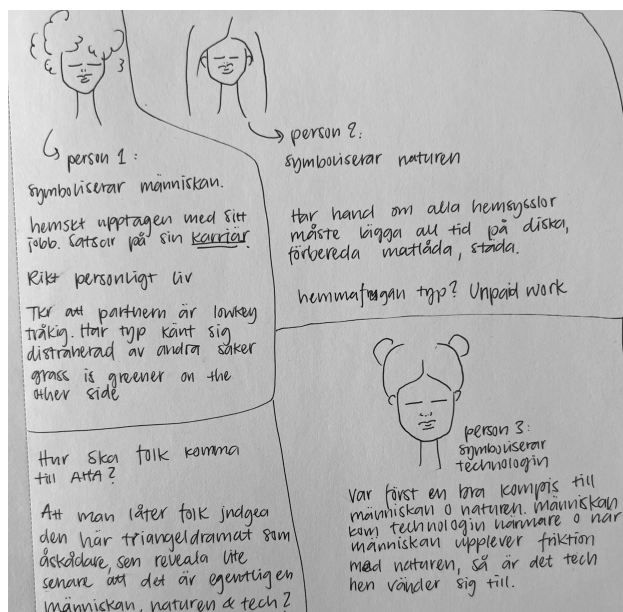 person 1:
symboliserar människan.
hemskt upptagen med sitt
jobb. Satsar på sin karriär
Rikt personligt liv
Tkr att partnern är lowkey
tråkig. Har typ känt sig
distraherad av andra saker
grass is greener on the
other side
person 2:
symboliserar naturen
Har hand om alla hemsysslor
måste lägga all tid på diska,
förbereda matlåda, städa.
hemmafrugan typ? Unpaid work
person 3:
symboliserar
technologin
Var först en bra kompis till
människan o naturen. människan
kom technologin närmare o när
människan upplever friktion
med naturen, så är det tech
hen vänder sig till.
Hur ska folk komma
till AHA?
Att man låter folk jndgea
den här triangeldramat som
åskådare, sen reveala lite
senare att det är egentligen
människan, naturen & tech?